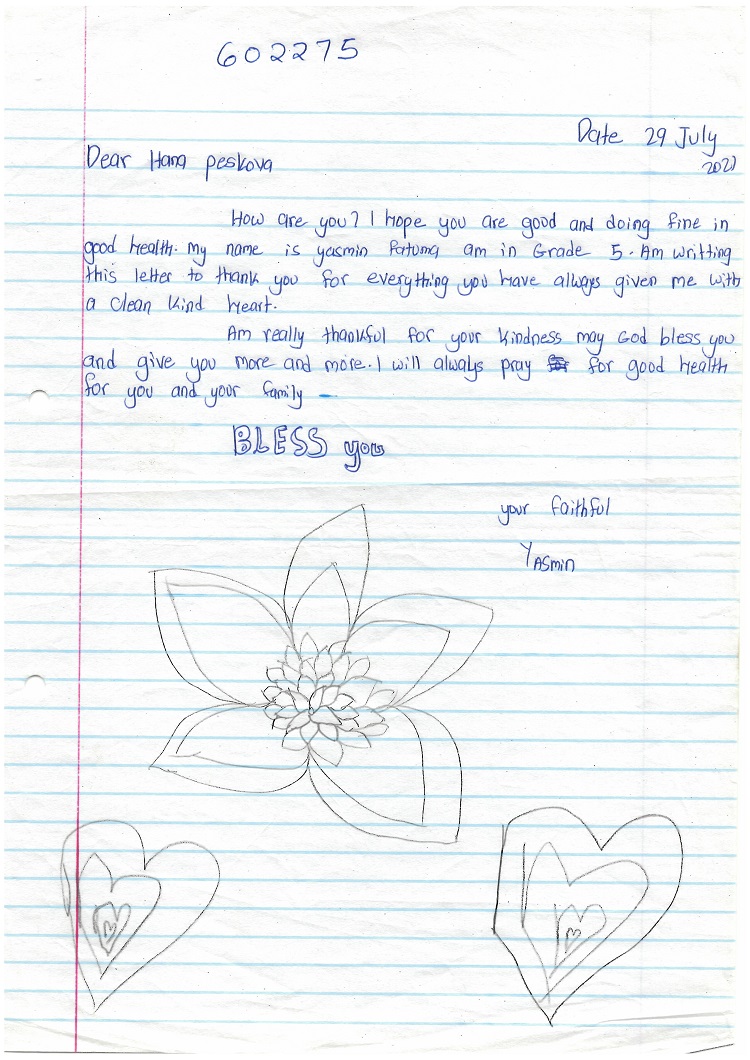 602275
Date 29 July
2021
Dear Hana peskova
How are you? I hope you are good and doing fine in
good health. my name is yasmin Fatuma am in Grade 5. Am writting
this letter to thank you for everything you have always given me with
a clean kind heart.
Am really thankful for your kindness may God bless you
and give you more and more. I will always pray for good health
for you and your family
BLESS you
your faithful
YAsmin